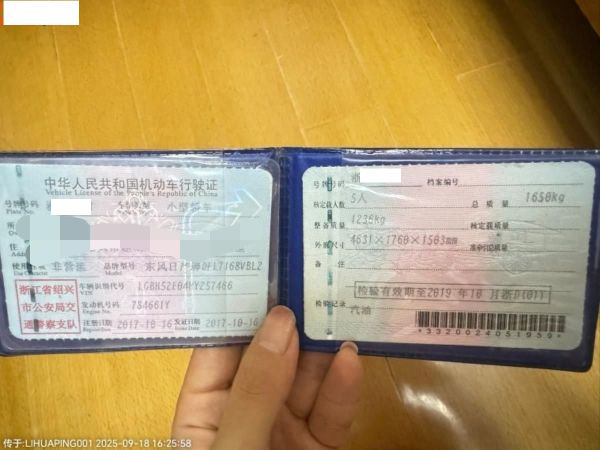 中华人民共和国机动车行驶证
Vehicle License of the People's Republic of China
号牌号码
Plate No.
小型轿车
住
使用性质 非营运 品牌型号 东风日产牌DFL7168VBL2
Use Character Model
浙江省绍兴
市公安局交
通警察支队
车辆识别代号
VIN
发动机号码 784661Y
Engine No.
注册日期 2017-10-16 发证日期 2017-10-16
Register Date Issue Date
号牌号码 浙 档案编号
核定载人数 5人 总质量 1650kg
整备质量 1236kg 核定载质量
外廓尺寸 4631×1760×1503 准牵引总质量
检验有效期至2019年10月
检验记录
汽油
*3320024051959*
传于:LIHUAPING001 2025-09-18 16:25:58